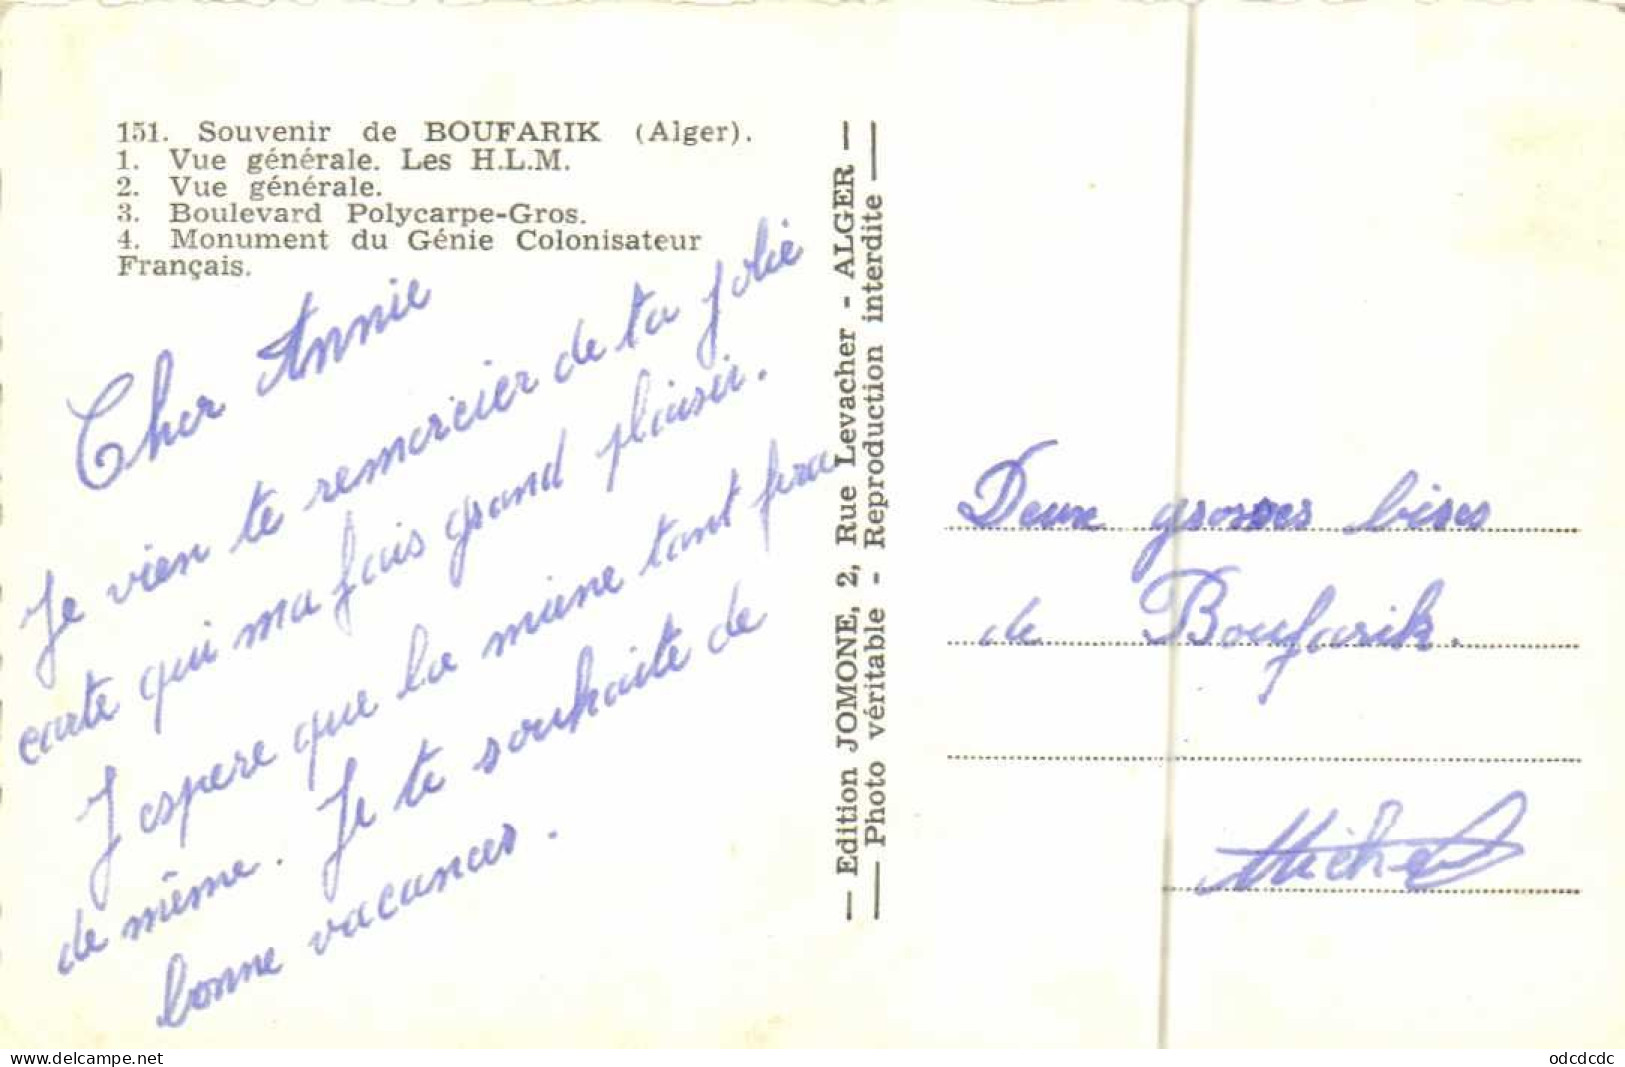 151. Souvenir de BOUFARIK (Alger).
1. Vue générale. Les H.L.M.
2. Vue générale.
3. Boulevard Polycarpe-Gros.
4. Monument du Génie Colonisateur
Français.
Cher Annie
Je vien te remercier de ta jolie
carte qui ma fais grand plaisir.
J espere que la miene tant fera
de même. Je te souhaite de
bonne vacances.
— Edition JOMONE, 2, Rue Levacher - ALGER —
— Photo véritable - Reproduction interdite —
Deux grosses bises
de Boufarik.
Michel
www.delcampe.net
odcdcdc